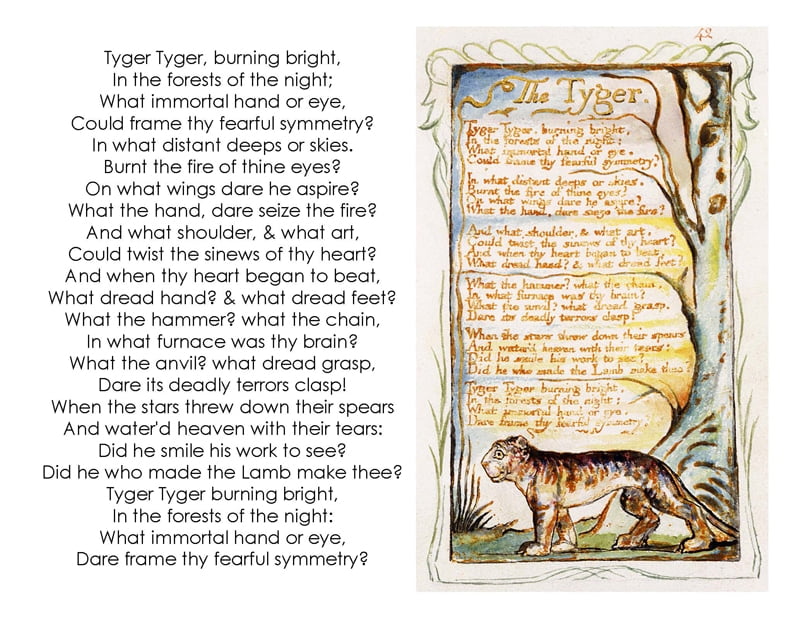 Tyger Tyger, burning bright,
In the forests of the night;
What immortal hand or eye,
Could frame thy fearful symmetry?
In what distant deeps or skies.
Burnt the fire of thine eyes?
On what wings dare he aspire?
What the hand, dare seize the fire?
And what shoulder, & what art,
Could twist the sinews of thy heart?
And when thy heart began to beat,
What dread hand? & what dread feet?
What the hammer? what the chain,
In what furnace was thy brain?
What the anvil? what dread grasp,
Dare its deadly terrors clasp!
When the stars threw down their spears
And water'd heaven with their tears:
Did he smile his work to see?
Did he who made the Lamb make thee?
Tyger Tyger burning bright,
In the forests of the night:
What immortal hand or eye,
Dare frame thy fearful symmetry?
42
The Tyger.
Tyger Tyger. burning bright,
In the forests of the night:
What immortal hand or eye.
Could frame thy fearful symmetry?
In what distant deeps or skies.
Burnt the fire of thine eyes?
On what wings dare he aspire?
What the hand, dare sieze the fire?
And what shoulder, & what art.
Could twist the sinews of thy heart?
And when thy heart began to beat,
What dread hand? & what dread feet?
What the hammer? what the chain,
In what furnace was thy brain?
What the anvil? what dread grasp,
Dare its deadly terrors clasp!
When the stars threw down their spears
And water'd heaven with their tears:
Did he smile his work to see?
Did he who made the Lamb make thee?
Tyger Tyger burning bright,
In the forests of the night:
What immortal hand or eye.
Dare frame thy fearful symmetry?